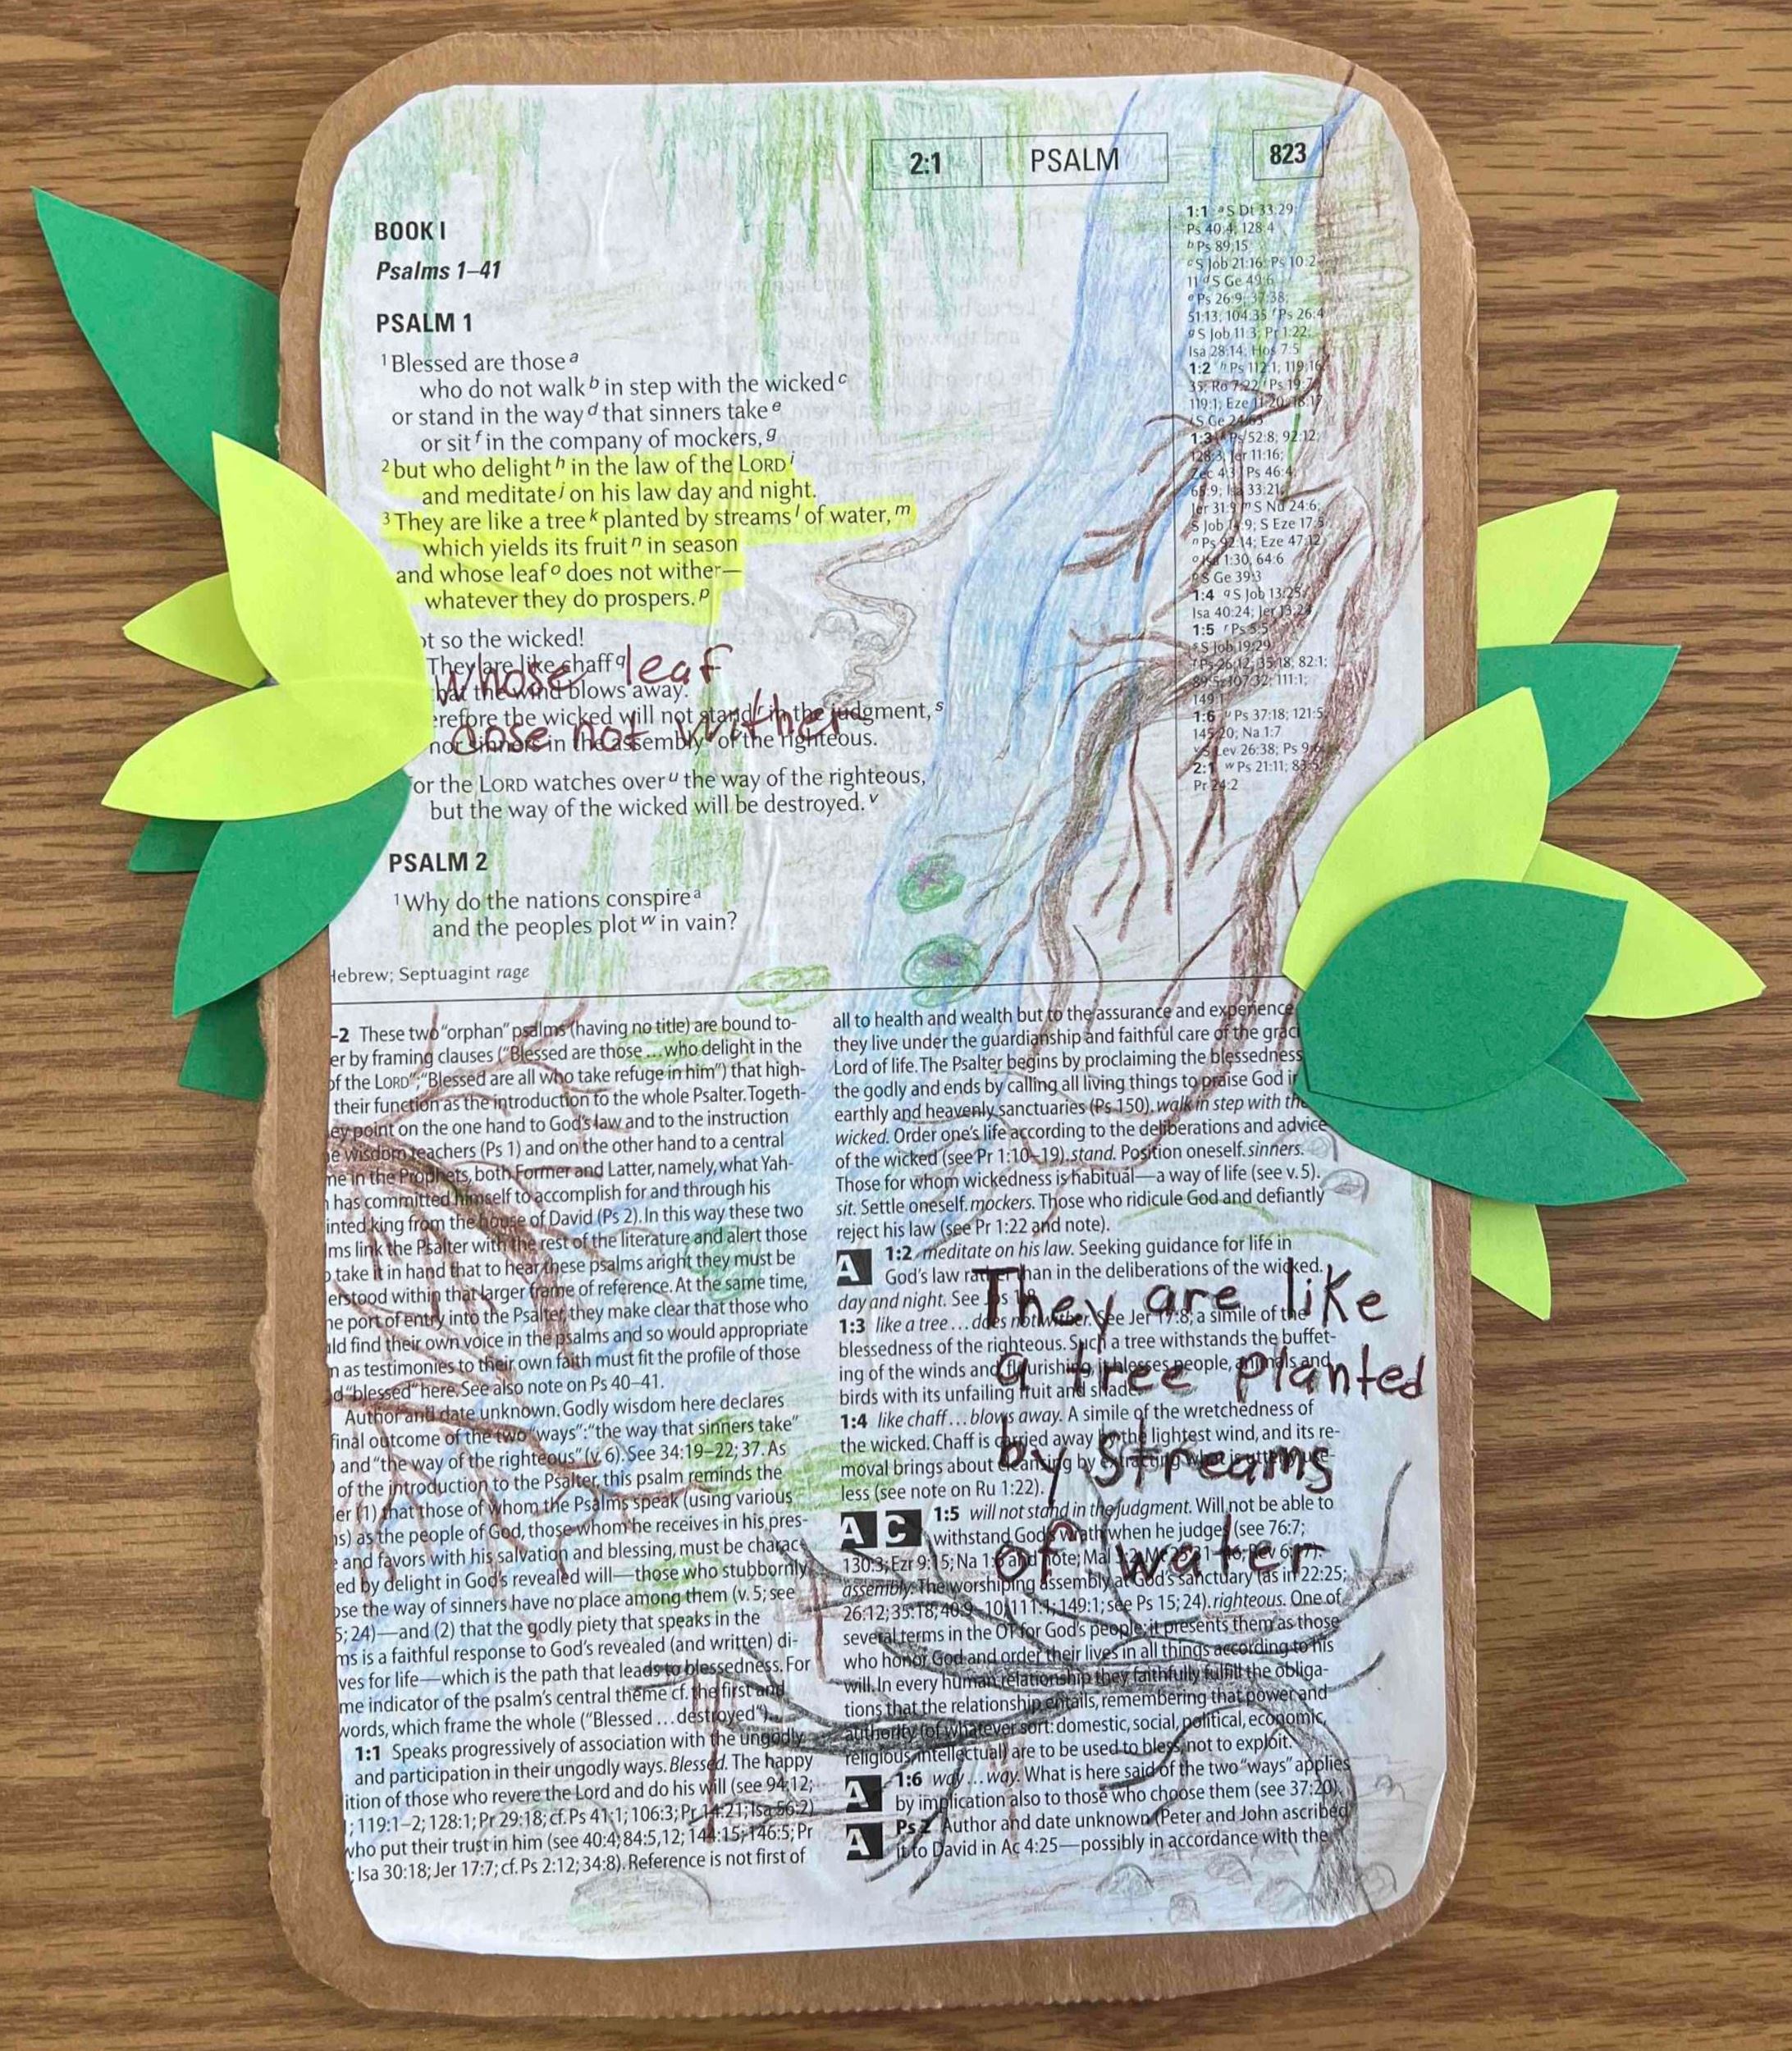 2:1 PSALM 823
BOOK I
Psalms 1–41
PSALM 1
1 Blessed are those a
who do not walk b in step with the wicked c
or stand in the way d that sinners take e
or sit f in the company of mockers, g
2 but who delight h in the law of the LORD i
and meditate j on his law day and night.
3 They are like a tree k planted by streams l of water, m
which yields its fruit n in season
and whose leaf o does not wither—
whatever they do prospers. p
ot so the wicked!
They are like chaff q
hat the wind blows away.
erefore the wicked will not stand r in the judgment, s
nor sinners in the assembly t of the righteous.
or the LORD watches over u the way of the righteous,
but the way of the wicked will be destroyed. v
whose leaf
dose not wither
PSALM 2
1 Why do the nations conspire a
and the peoples plot w in vain?
Hebrew; Septuagint rage
1:1 a S Dt 33:29;
Ps 40:4; 128:4
b Ps 89:15
c S Job 21:16; Ps 10:2-
11 d S Ge 49:6
e Ps 26:9; 37:38;
51:13; 104:35 f Ps 26:4
g S Job 11:3; Pr 1:22;
Isa 28:14; Hos 7:5
1:2 h Ps 112:1; 119:16,
35; Ro 7:22 i Ps 19:7;
119:1; Eze 11:20; 18:17
j S Ge 24:63
1:3 k Ps 52:8; 92:12;
128:3; Jer 11:16;
Zec 4:3 l Ps 46:4;
65:9; Isa 33:21;
Jer 31:9 m S Nu 24:6;
S Job 14:9; S Eze 17:5
n Ps 92:14; Eze 47:12
o Isa 1:30; 64:6
p S Ge 39:3
1:4 q S Job 13:25;
Isa 40:24; Jer 13:24
1:5 r Ps 5:5
s S Job 19:29
t Ps 26:12; 35:18; 82:1;
89:5; 107:32; 111:1;
149:1
1:6 u Ps 37:18; 121:5;
145:20; Na 1:7
v S Lev 26:38; Ps 9:6
2:1 w Ps 21:11; 83:5;
Pr 24:2
-2 These two "orphan" psalms (having no title) are bound to-
er by framing clauses ("Blessed are those ... who delight in the
of the LORD"; "Blessed are all who take refuge in him") that high-
their function as the introduction to the whole Psalter. Togeth-
ey point on the one hand to God's law and to the instruction
e wisdom teachers (Ps 1) and on the other hand to a central
me in the Prophets, both Former and Latter, namely, what Yah-
h has committed himself to accomplish for and through his
inted king from the house of David (Ps 2). In this way these two
lms link the Psalter with the rest of the literature and alert those
o take it in hand that to hear these psalms aright they must be
erstood within that larger frame of reference. At the same time,
he port of entry into the Psalter, they make clear that those who
uld find their own voice in the psalms and so would appropriate
n as testimonies to their own faith must fit the profile of those
d "blessed" here. See also note on Ps 40–41.
Author and date unknown. Godly wisdom here declares
final outcome of the two "ways": "the way that sinners take"
) and "the way of the righteous" (v. 6). See 34:19–22; 37. As
of the introduction to the Psalter, this psalm reminds the
er (1) that those of whom the Psalms speak (using various
ns) as the people of God, those whom he receives in his pres-
e and favors with his salvation and blessing, must be charac-
ed by delight in God's revealed will—those who stubbornly
ose the way of sinners have no place among them (v. 5; see
5; 24)—and (2) that the godly piety that speaks in the
ms is a faithful response to God's revealed (and written) di-
ves for life—which is the path that leads to blessedness. For
me indicator of the psalm's central theme cf. the first and
words, which frame the whole ("Blessed ... destroyed").
1:1 Speaks progressively of association with the ungodly
and participation in their ungodly ways. Blessed. The happy
ition of those who revere the Lord and do his will (see 94:12;
; 119:1–2; 128:1; Pr 29:18; cf. Ps 41:1; 106:3; Pr 14:21; Isa 56:2)
who put their trust in him (see 40:4; 84:5,12; 144:15; 146:5; Pr
; Isa 30:18; Jer 17:7; cf. Ps 2:12; 34:8). Reference is not first of
all to health and wealth but to the assurance and experience
they live under the guardianship and faithful care of the graci
Lord of life. The Psalter begins by proclaiming the blessedness
the godly and ends by calling all living things to praise God in
earthly and heavenly sanctuaries (Ps 150). walk in step with the
wicked. Order one's life according to the deliberations and advice
of the wicked (see Pr 1:10–19). stand. Position oneself. sinners.
Those for whom wickedness is habitual—a way of life (see v. 5).
sit. Settle oneself. mockers. Those who ridicule God and defiantly
reject his law (see Pr 1:22 and note).
A 1:2 meditate on his law. Seeking guidance for life in
God's law rather than in the deliberations of the wicked.
day and night. See
1:3 like a tree ... does not wither. See Jer 17:8; a simile of the
blessedness of the righteous. Such a tree withstands the buffet-
ing of the winds and, flourishing, it blesses people, animals and
birds with its unfailing fruit and shade.
1:4 like chaff ... blows away. A simile of the wretchedness of
the wicked. Chaff is carried away by the lightest wind, and its re-
moval brings about cleansing by extracting what is utterly use-
less (see note on Ru 1:22).
A C 1:5 will not stand in the judgment. Will not be able to
withstand God's wrath when he judges (see 76:7;
130:3; Ezr 9:15; Na 1:6 and note; Mal 3:2;
assembly. The worshiping assembly at God's sanctuary (as in 22:25;
26:12; 35:18; 40:9–10; 111:1; 149:1; see Ps 15; 24). righteous. One of
several terms in the OT for God's people; it presents them as those
who honor God and order their lives in all things according to his
will. In every human relationship they faithfully fulfill the obliga-
tions that the relationship entails, remembering that power and
authority (of whatever sort: domestic, social, political, economic,
religious, intellectual) are to be used to bless, not to exploit.
A 1:6 way ... way. What is here said of the two "ways" applies
by implication also to those who choose them (see 37:20).
A Ps 2 Author and date unknown (Peter and John ascribed
it to David in Ac 4:25—possibly in accordance with the
They are like
a tree planted
by streams
of water